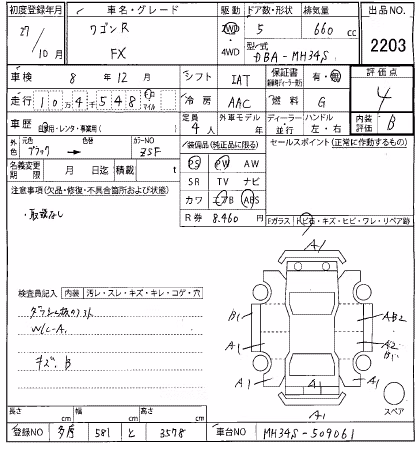 初度登録年月 車名・グレード 駆動 ドア数・形状 排気量 出品NO.
27 ワゴンR 2WD 5 660 cc 2203
10月 FX 4WD 型式 DBA-MH34S
車検 8年 12月 シフト IAT 保証書 有・無 評価点
走行 10万4千548 キロ マイル 冷房 AAC 燃料 G 4
車歴 自家用・レンタ・事業用( ) 定員 4人 外車モデル 年 ディーラー 並行 ハンドル 左・右 内装評価 B
外色 元色 ブラック 色替 カラーNO ZSF 装備品(純正品に限る) セールスポイント(正常に作動するもの)
名義変更期限 月 日迄 積載 t PS PW AW
注意事項(欠品・修復・不具合箇所および状態) SR TV ナビ
・取説なし カワ エアB ABS
R券 8,460円
Fガラス トビ石・キズ・ヒビ・ワレ・リペア跡
A1
検査員記入 内装 汚レ・スレ・キズ・キレ・コゲ・穴
B1 AB2
W/C-A1
A1 A2
B1
キズ、B
A1 A1
A1
スペア
長さ cm 幅 cm 高さ cm
A1
登録NO 多摩 581 と 3578 車台NO MH34S-509061